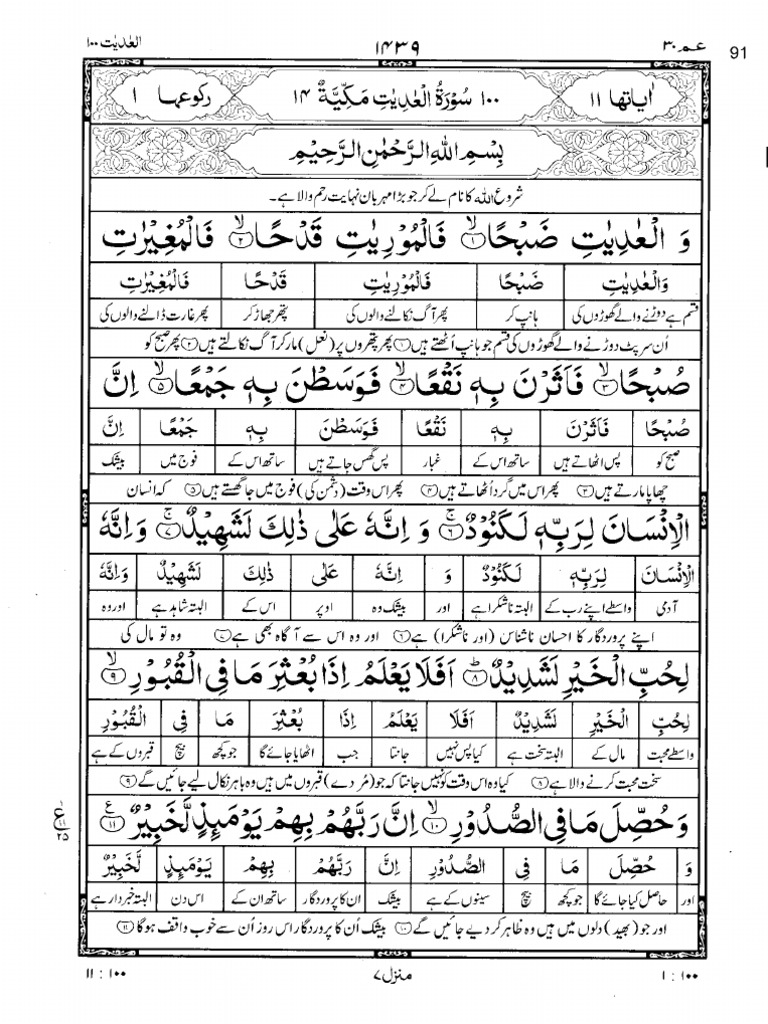 عم ۳۰ ۱۴۳۹ العٰدیٰت ۱۰۰
91
اٰیاتھا ۱۱ ۱۰۰ سُوْرَۃُ الْعٰدِیٰتِ مَکِّیَّۃٌ ۱۴ رکوعہا ۱
بِسْمِ اللّٰهِ الرَّحْمٰنِ الرَّحِیْمِ
شروع اللّٰہ کا نام لے کر جو بڑا مہربان نہایت رحم والا ہے۔
وَ الْعٰدِیٰتِ ضَبْحًا ۙ﴿۱﴾ فَالْمُوْرِیٰتِ قَدْحًا ۙ﴿۲﴾ فَالْمُغِیْرٰتِ
وَالْعٰدِیٰتِ ضَبْحًا فَالْمُوْرِیٰتِ قَدْحًا فَالْمُغِیْرٰتِ
قسم ہے دوڑنے والے گھوڑوں کی ہانپ کر پھر آگ نکالنے والوں کی پتھر جھاڑ کر پھر غارت ڈالنے والوں کی
اُن سرپٹ دوڑنے والے گھوڑوں کی قسم جو ہانپ اُٹھتے ہیں ﴿۱﴾ پھر پتھروں پر (نعل) مار کر آگ نکالتے ہیں ﴿۲﴾ پھر صبح کو
صُبْحًا ۙ﴿۳﴾ فَاَثَرْنَ بِهٖ نَقْعًا ۙ﴿۴﴾ فَوَسَطْنَ بِهٖ جَمْعًا ۙ﴿۵﴾ اِنَّ
صُبْحًا فَاَثَرْنَ بِهٖ نَقْعًا فَوَسَطْنَ بِهٖ جَمْعًا اِنَّ
صبح کو پس اٹھاتے ہیں ساتھ اس کے غبار پس گھس جاتے ہیں ساتھ اس کے فوج میں بیشک
چھاپا مارتے ہیں ﴿۳﴾ پھر اس میں گرد اُٹھاتے ہیں ﴿۴﴾ پھر اس وقت (دشمن کی) فوج میں جا گھستے ہیں ﴿۵﴾ کہ انسان
الْاِنْسَانَ لِرَبِّهٖ لَكَنُوْدٌ ۚ﴿۶﴾ وَ اِنَّهٗ عَلٰی ذٰلِكَ لَشَهِیْدٌ ۚ﴿۷﴾ وَ اِنَّهٗ
الْاِنْسَانَ لِرَبِّهٖ لَكَنُوْدٌ وَ اِنَّهٗ عَلٰی ذٰلِكَ لَشَهِیْدٌ وَاِنَّهٗ
آدمی واسطے اپنے رب کے البتہ ناشکرا ہے اور بیشک وہ اوپر اس کے البتہ شاہد ہے اور وہ
اپنے پروردگار کا احسان ناشناس (اور ناشکرا) ہے ﴿۶﴾ اور وہ اس سے آگاہ بھی ہے ﴿۷﴾ وہ تو مال کی
لِحُبِّ الْخَیْرِ لَشَدِیْدٌ ؕ﴿۸﴾ اَفَلَا یَعْلَمُ اِذَا بُعْثِرَ مَا فِی الْقُبُوْرِ ۙ﴿۹﴾
لِحُبِّ الْخَیْرِ لَشَدِیْدٌ اَفَلَا یَعْلَمُ اِذَا بُعْثِرَ مَا فِی الْقُبُوْرِ
واسطے محبت مال کے البتہ سخت ہے کیا پس نہیں جانتا جب اٹھایا جائے گا جو کچھ بیچ قبروں کے ہے
سخت محبت کرنے والا ہے ﴿۸﴾ کیا وہ اس وقت کو نہیں جانتا کہ جو (مُردے) قبروں میں ہیں وہ باہر نکال لیے جائیں گے ﴿۹﴾
وَ حُصِّلَ مَا فِی الصُّدُوْرِ ۙ﴿۱۰﴾ اِنَّ رَبَّهُمْ بِهِمْ یَوْمَئِذٍ لَّخَبِیْرٌ ﴿۱۱﴾ ع
وَ حُصِّلَ مَا فِی الصُّدُوْرِ اِنَّ رَبَّهُمْ بِهِمْ یَوْمَئِذٍ لَّخَبِیْرٌ
اور حاصل کیا جائے گا جو کچھ بیچ سینوں کے ہے بیشک ان کا پروردگار ساتھ ان کے اس دن البتہ خبردار ہے
اور جو (بھید) دلوں میں ہیں وہ ظاہر کر دیے جائیں گے ﴿۱۰﴾ بیشک اُن کا پروردگار اس روز اُن سے خوب واقف ہوگا ﴿۱۱﴾
۱ : ۱۰۰ منزل ۷ ۱۱ : ۱۰۰